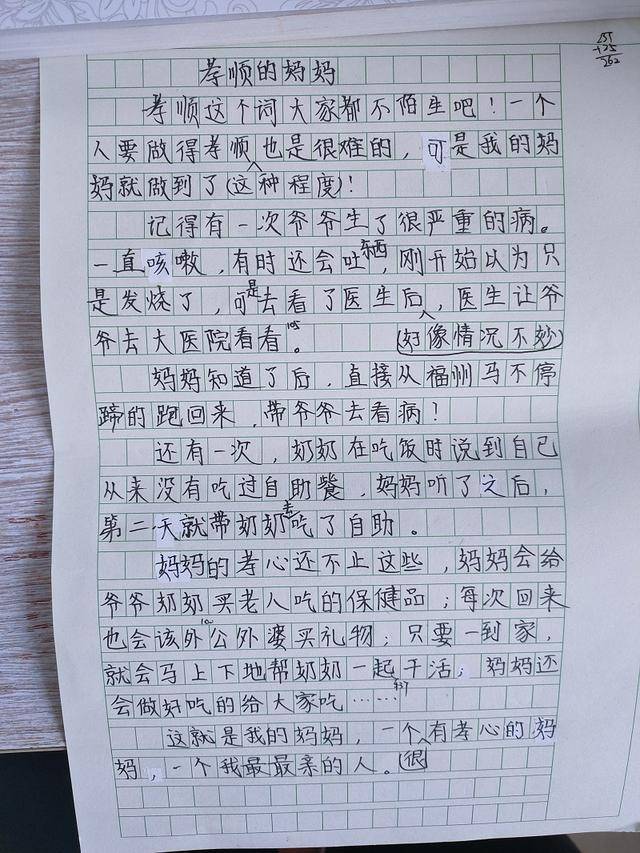 151
+125
262
孝顺的妈妈
孝顺这个词大家都不陌生吧！一个
人要做得孝顺也是很难的，可是我的妈
妈就做到了(这种程度)！
记得有一次爷爷生了很严重的病。
一直咳嗽，有时还会吐东西，刚开始以为只
是发烧了，可是去看了医生后，医生让爷
爷去大医院看看。
(好像情况不妙)
妈妈知道了后，直接从福州马不停
蹄的跑回来，带爷爷去看病！
还有一次，奶奶在吃饭时说到自己
从来没有吃过自助餐，妈妈听了之后，
第二天就带奶奶去吃了自助。
妈妈的孝心还不止这些，妈妈会给
爷爷奶奶买老人吃的保健品；每次回来
也会该外公外婆买礼物；只要一到家，
就会马上下地帮奶奶一起干活；妈妈还
会做好吃的给大家吃……
这就是我的妈妈，一个很有孝心的妈
妈，一个我最最亲的人。